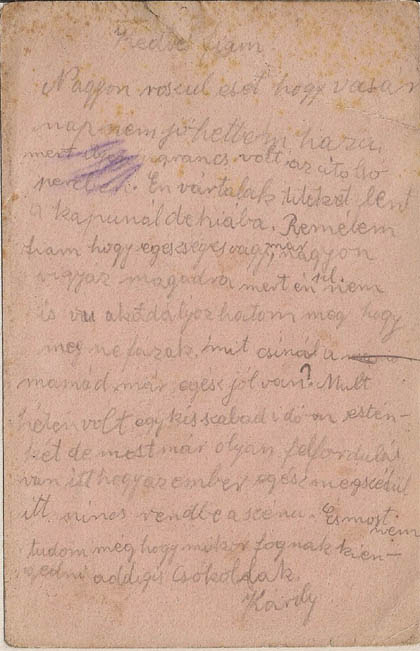 Kedves fiam
Nagyon roszul eset hogy vasar
nap nem jőhettem haza,
mert ugrancs volt az útolso
percbek. Én vártalak titeket lent
a kapunál de hiába. Remélem
fiam hogy egeségesvagy, már nagyon
vigyaz magadra mert én nem
is akadájozhatom meg hogy
meg ne fazak. mit csinál a
mamád már egész jól van? Mult
héten volt egy kis szabad időm estén-
két de most már olyan felfordulás
van itt hogy az ember egész megszédül
itt nincs rendbe a scenu. És most nem
tudom még hogy mikor fognak kien-
gedni addigis csokollak
Károly